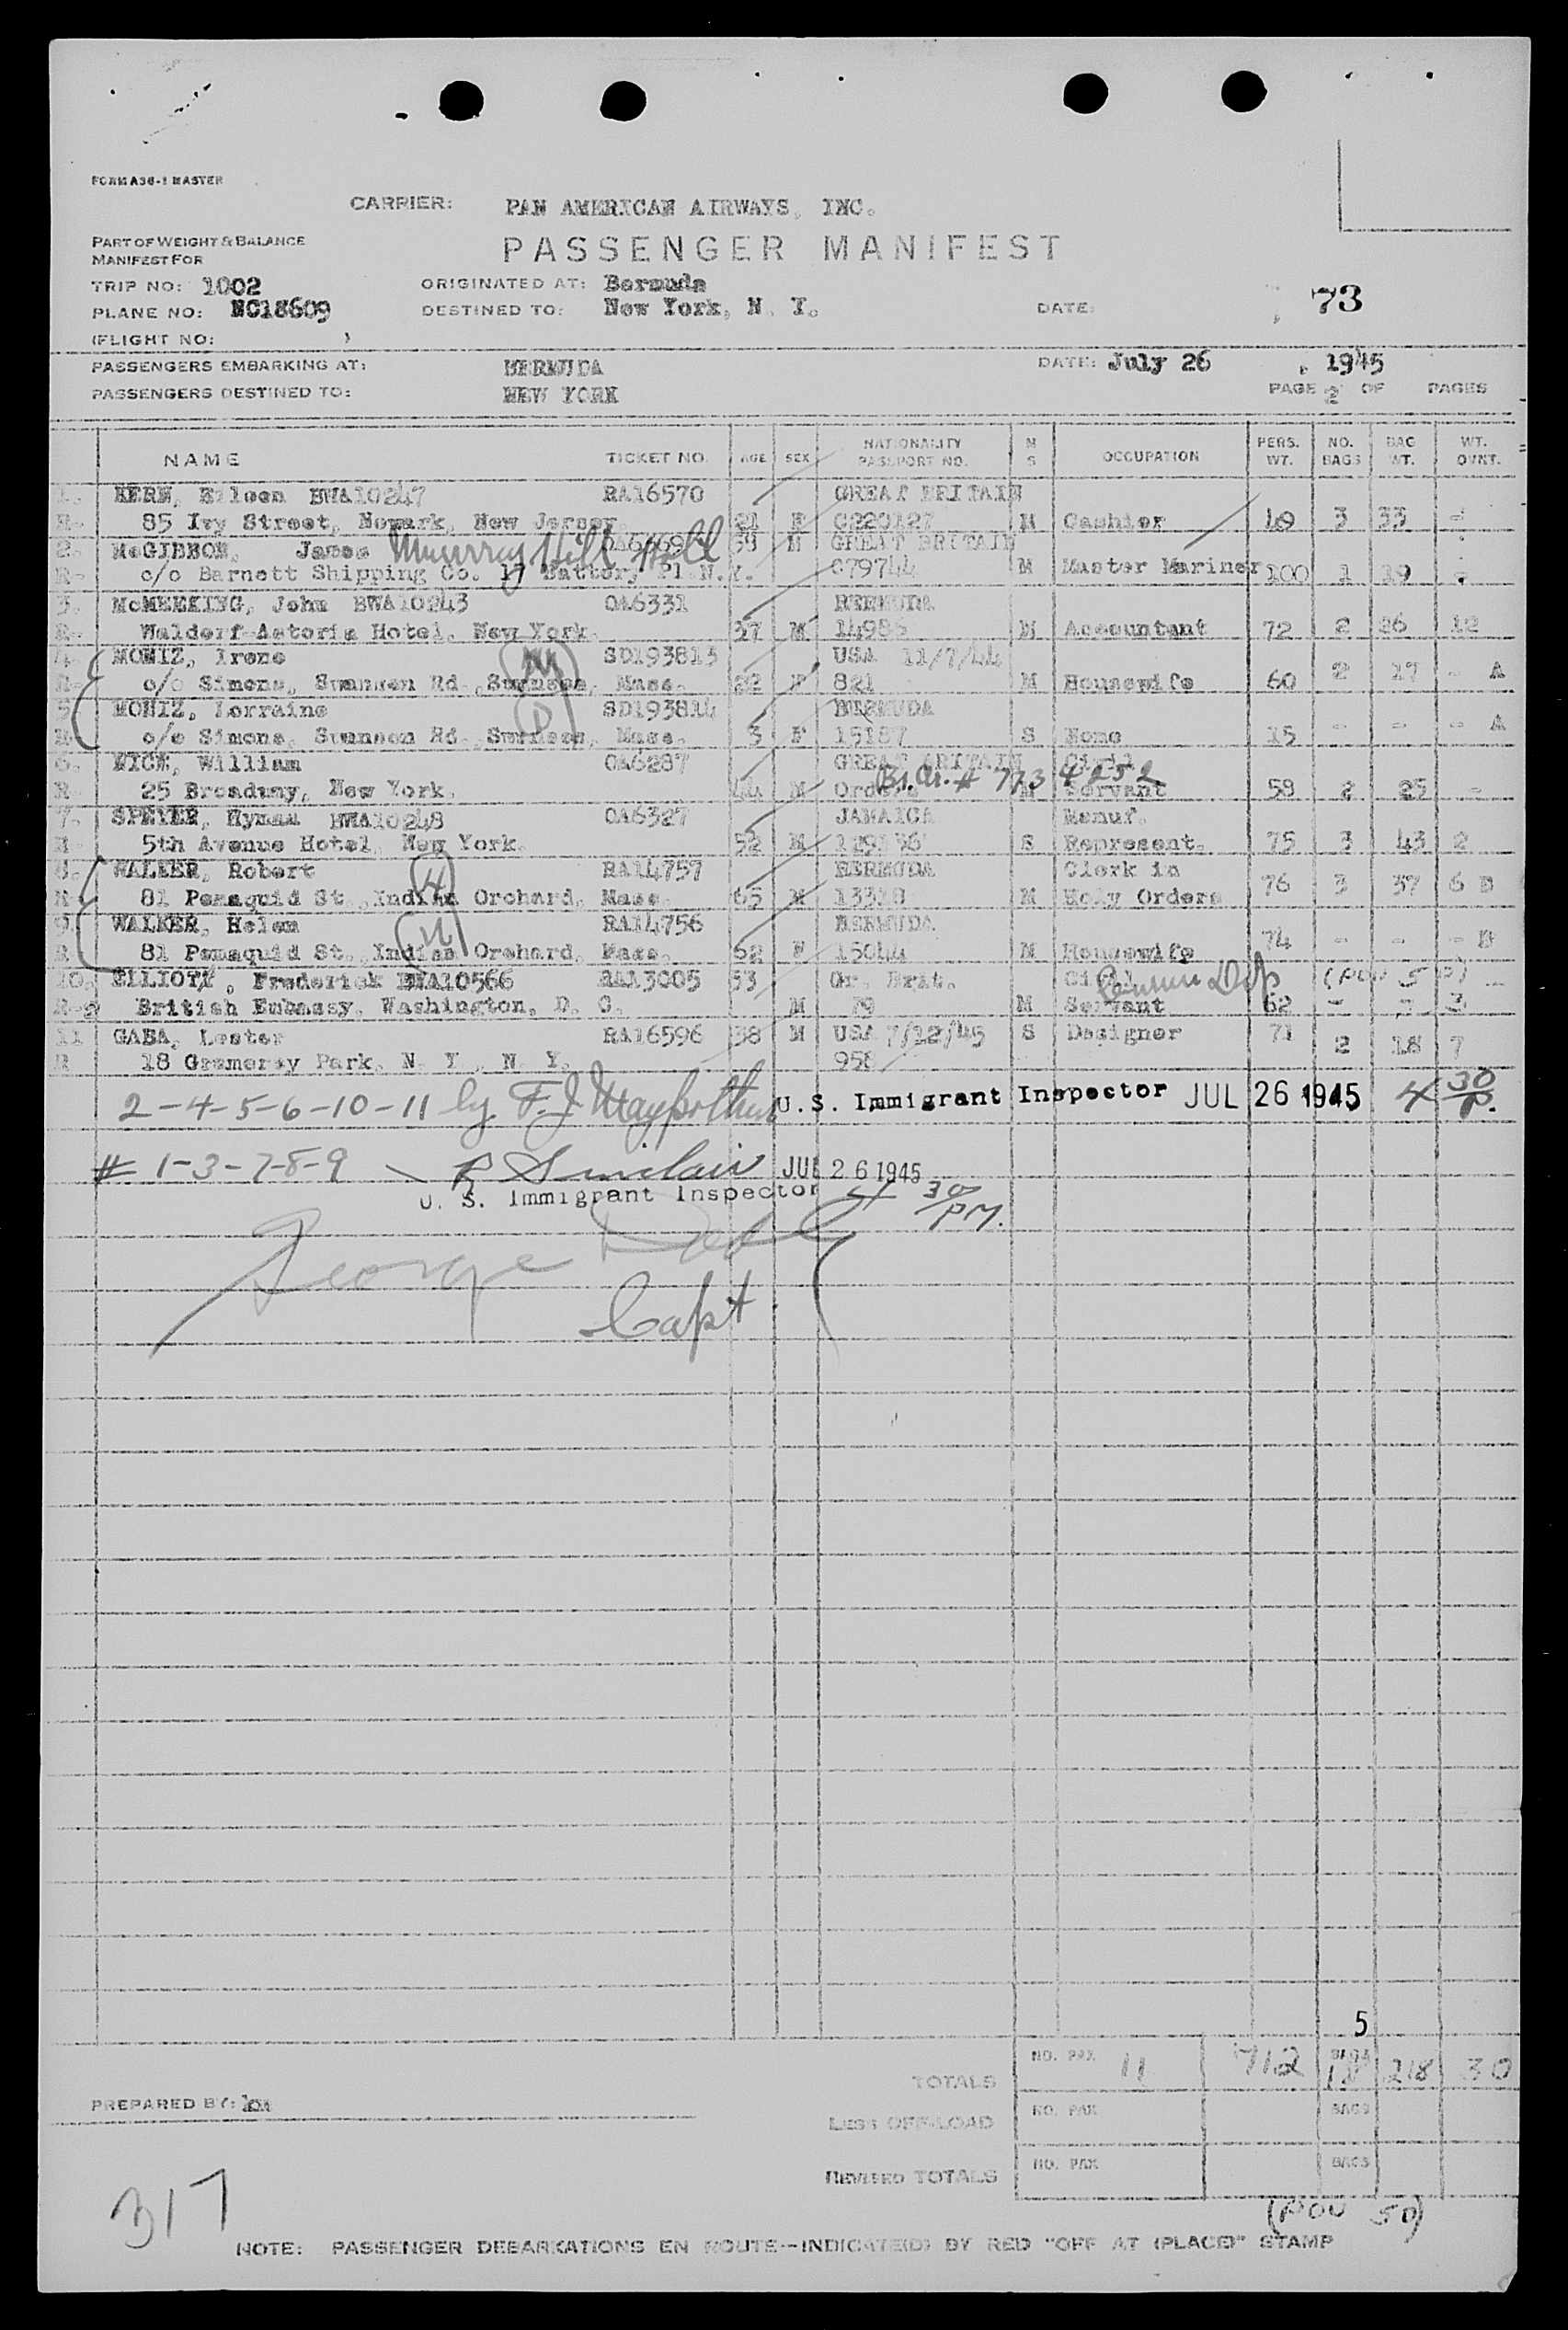 FORM A36-1 MASTER
CARRIER: PAN AMERICAN AIRWAYS, INC.
PART OF WEIGHT & BALANCE
MANIFEST FOR
PASSENGER MANIFEST
TRIP NO: 1002 ORIGINATED AT: Bermuda
PLANE NO: NC18609 DESTINED TO: New York, N. Y. DATE: 73
(FLIGHT NO: )
PASSENGERS EMBARKING AT: BERMUDA DATE: July 26, 1945
PASSENGERS DESTINED TO: NEW YORK PAGE 2 OF PAGES
NAME TICKET NO. AGE SEX NATIONALITY PASSPORT NO. M S OCCUPATION PERS. WT. NO. BAGS BAG WT. WT. OVRT.
1. KERN, Eileen BWA10247 RA16570 GREAT BRITAIN
R- 85 Ivy Street, Newark, New Jersey. 21 F C220127 M Cashier 49 3 33 -
2. McGIBBON, James Murray Hill Hotl 39 M GREAT BRITAIN
R- c/o Barnett Shipping Co. 17 Battery Pl N.Y. 079744 M Master Mariner 100 1 19 -
3. McMEEKING, John BWA10243 OA6331 BERMUDA
R- Waldorf-Astoria Hotel, New York. 27 M M Accountant 72 2 26 12
4. MONIZ, Irene SD193813 USA 11/7/44
R- c/o Simons, Swanson Rd., Swansea, Mass. 22 F 821 M Housewife 60 2 17 - A
5. MONIZ, Lorraine SD193814 BERMUDA
R- c/o Simons, Swanson Rd. Swansea, Mass. 3 F 15187 S None 15 - - - A
6. William OA6287 GREAT BRITAIN Civil
R- 25 Broadway, New York. 44 M Br. Ar. # 7734252 M Servant 59 2 25 -
7. SPEYER, Hyman BWA10248 OA6327 JAMAICA Manuf.
R- 5th Avenue Hotel, New York. 52 M S Represent. 75 3 43 2
8. WALKER, Robert RA14757 BERMUDA Clerk in
R- 81 Pemaquid St., Indian Orchard, Mass. 65 M 13318 M Holy Orders 76 3 37 6 B
9. WALKER, Helen RA14756 BERMUDA
R 81 Pemaquid St., Indian Orchard, Mass. 62 F 15044 M Housewife 74 - - - B
10. ELLIOTT, Frederick BWA10566 RA13005 53 Gr. Brit. Civil (POU 50) -
R-2 British Embassy, Washington, D. C. M 79 M Servant 62 - - 3
11 GABA, Lester RA16596 38 M USA 7/12/45 S Designer 71
R 18 Gramercy Park, N. Y., N. Y. 958 2 18 7
2-4-5-6-10-11 by U.S. Immigrant Inspector JUL 26 1945 4 30 P.
# 1-3-7-8-9 R Sinclair JUL 26 1945
U. S. Immigrant Inspector 4 30 PM.
George
Capt
5
TOTALS NO. PAX 11 712 BAGS 18 218 30
PREPARED BY:
LESS OFF-LOAD NO. PAX BAGS
REVISED TOTALS NO. PAX BAGS
(POU 50)
317
NOTE: PASSENGER DEBARKATIONS EN ROUTE--INDICATE(D) BY RED "OFF AT (PLACE)" STAMP